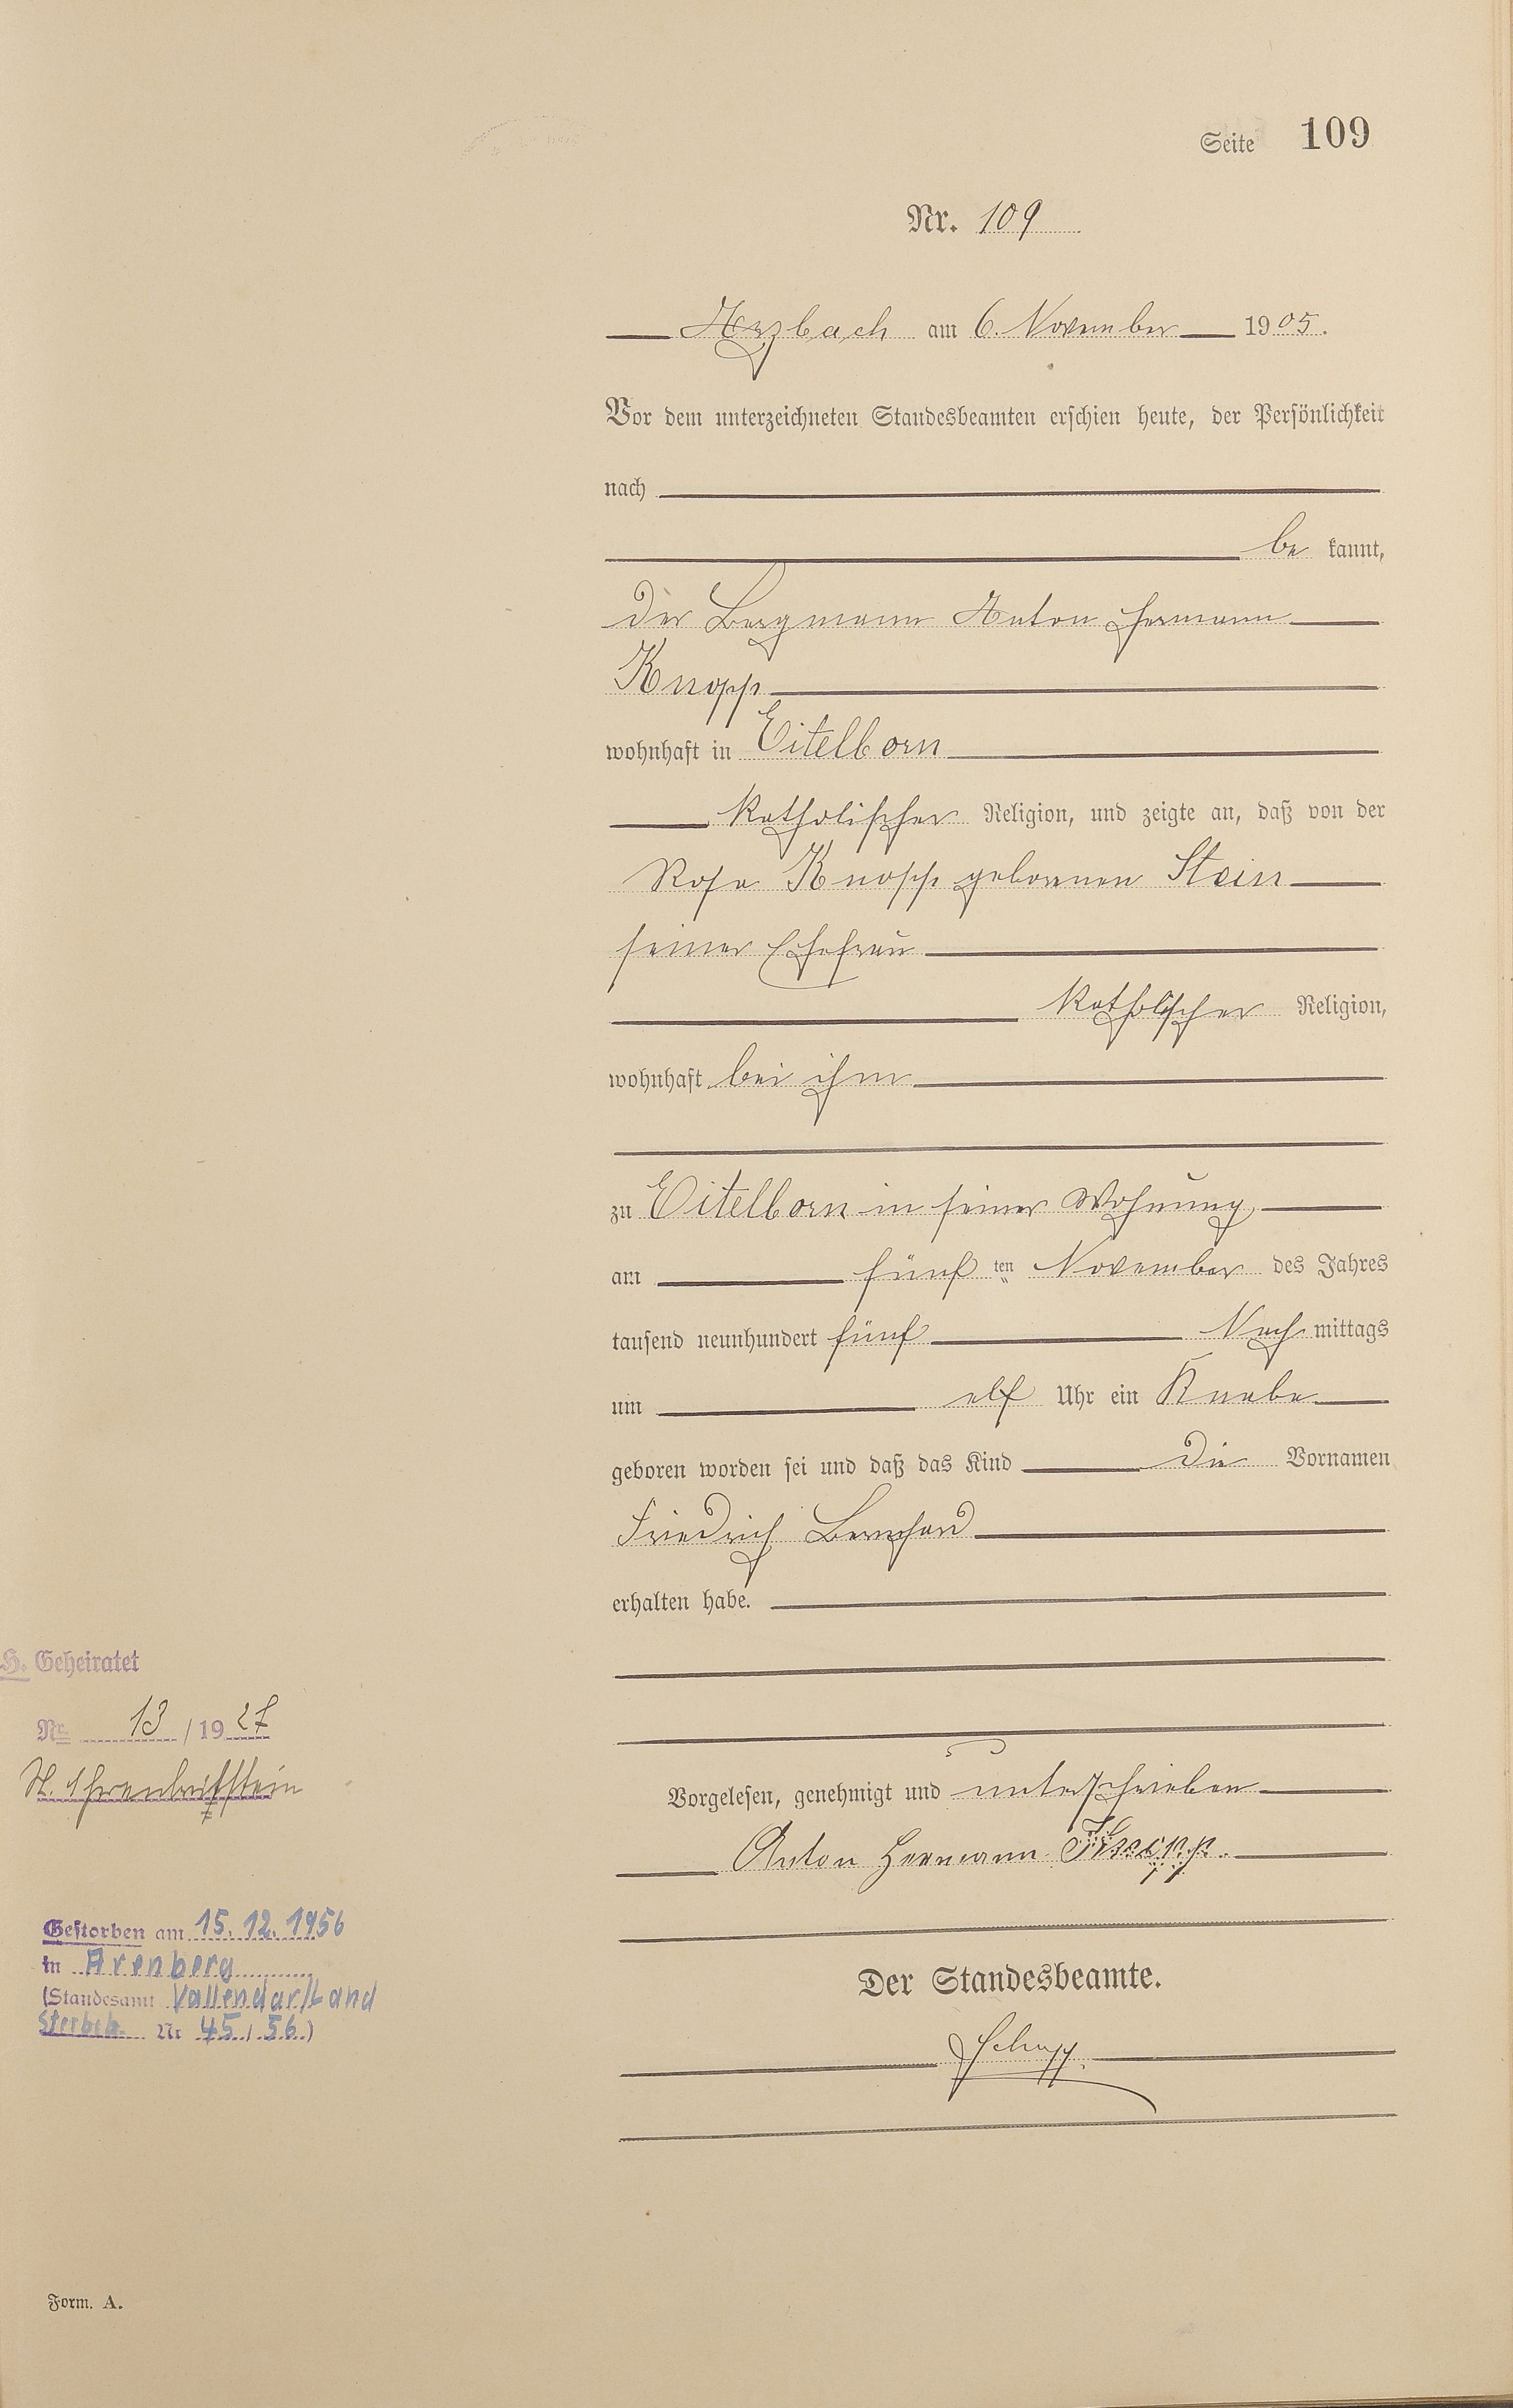 Seite 109
Nr. 109
Arzbach am 6. November 1905.
Vor dem unterzeichneten Standesbeamten erschien heute, der Persönlichkeit
nach
be kannt,
der Bergmann Anton Hermann
Knopp
wohnhaft in Eitelborn
katholischer Religion, und zeigte an, daß von der
Rosa Knopp geborenen Stein
seiner Ehefrau
katholischer Religion,
wohnhaft bei ihm
zu Eitelborn in seiner Wohnung
am fünf ten November des Jahres
tausend neunhundert fünf Nach mittags
um elf Uhr ein Knabe
geboren worden sei und daß das Kind die Vornamen
Friedrich Bernhard
erhalten habe.
Vorgelesen, genehmigt und unterschrieben
Anton Hermann Knopp.
Der Standesbeamte.
Schupp.
H. Geheiratet
Nr. 13 / 1927
St. Ehrenbreitstein
Gestorben am 15.12.1956
in Arenberg
(Standesamt Vallendar/Land
Sterbeb. Nr 45 / 56)
Form. A.